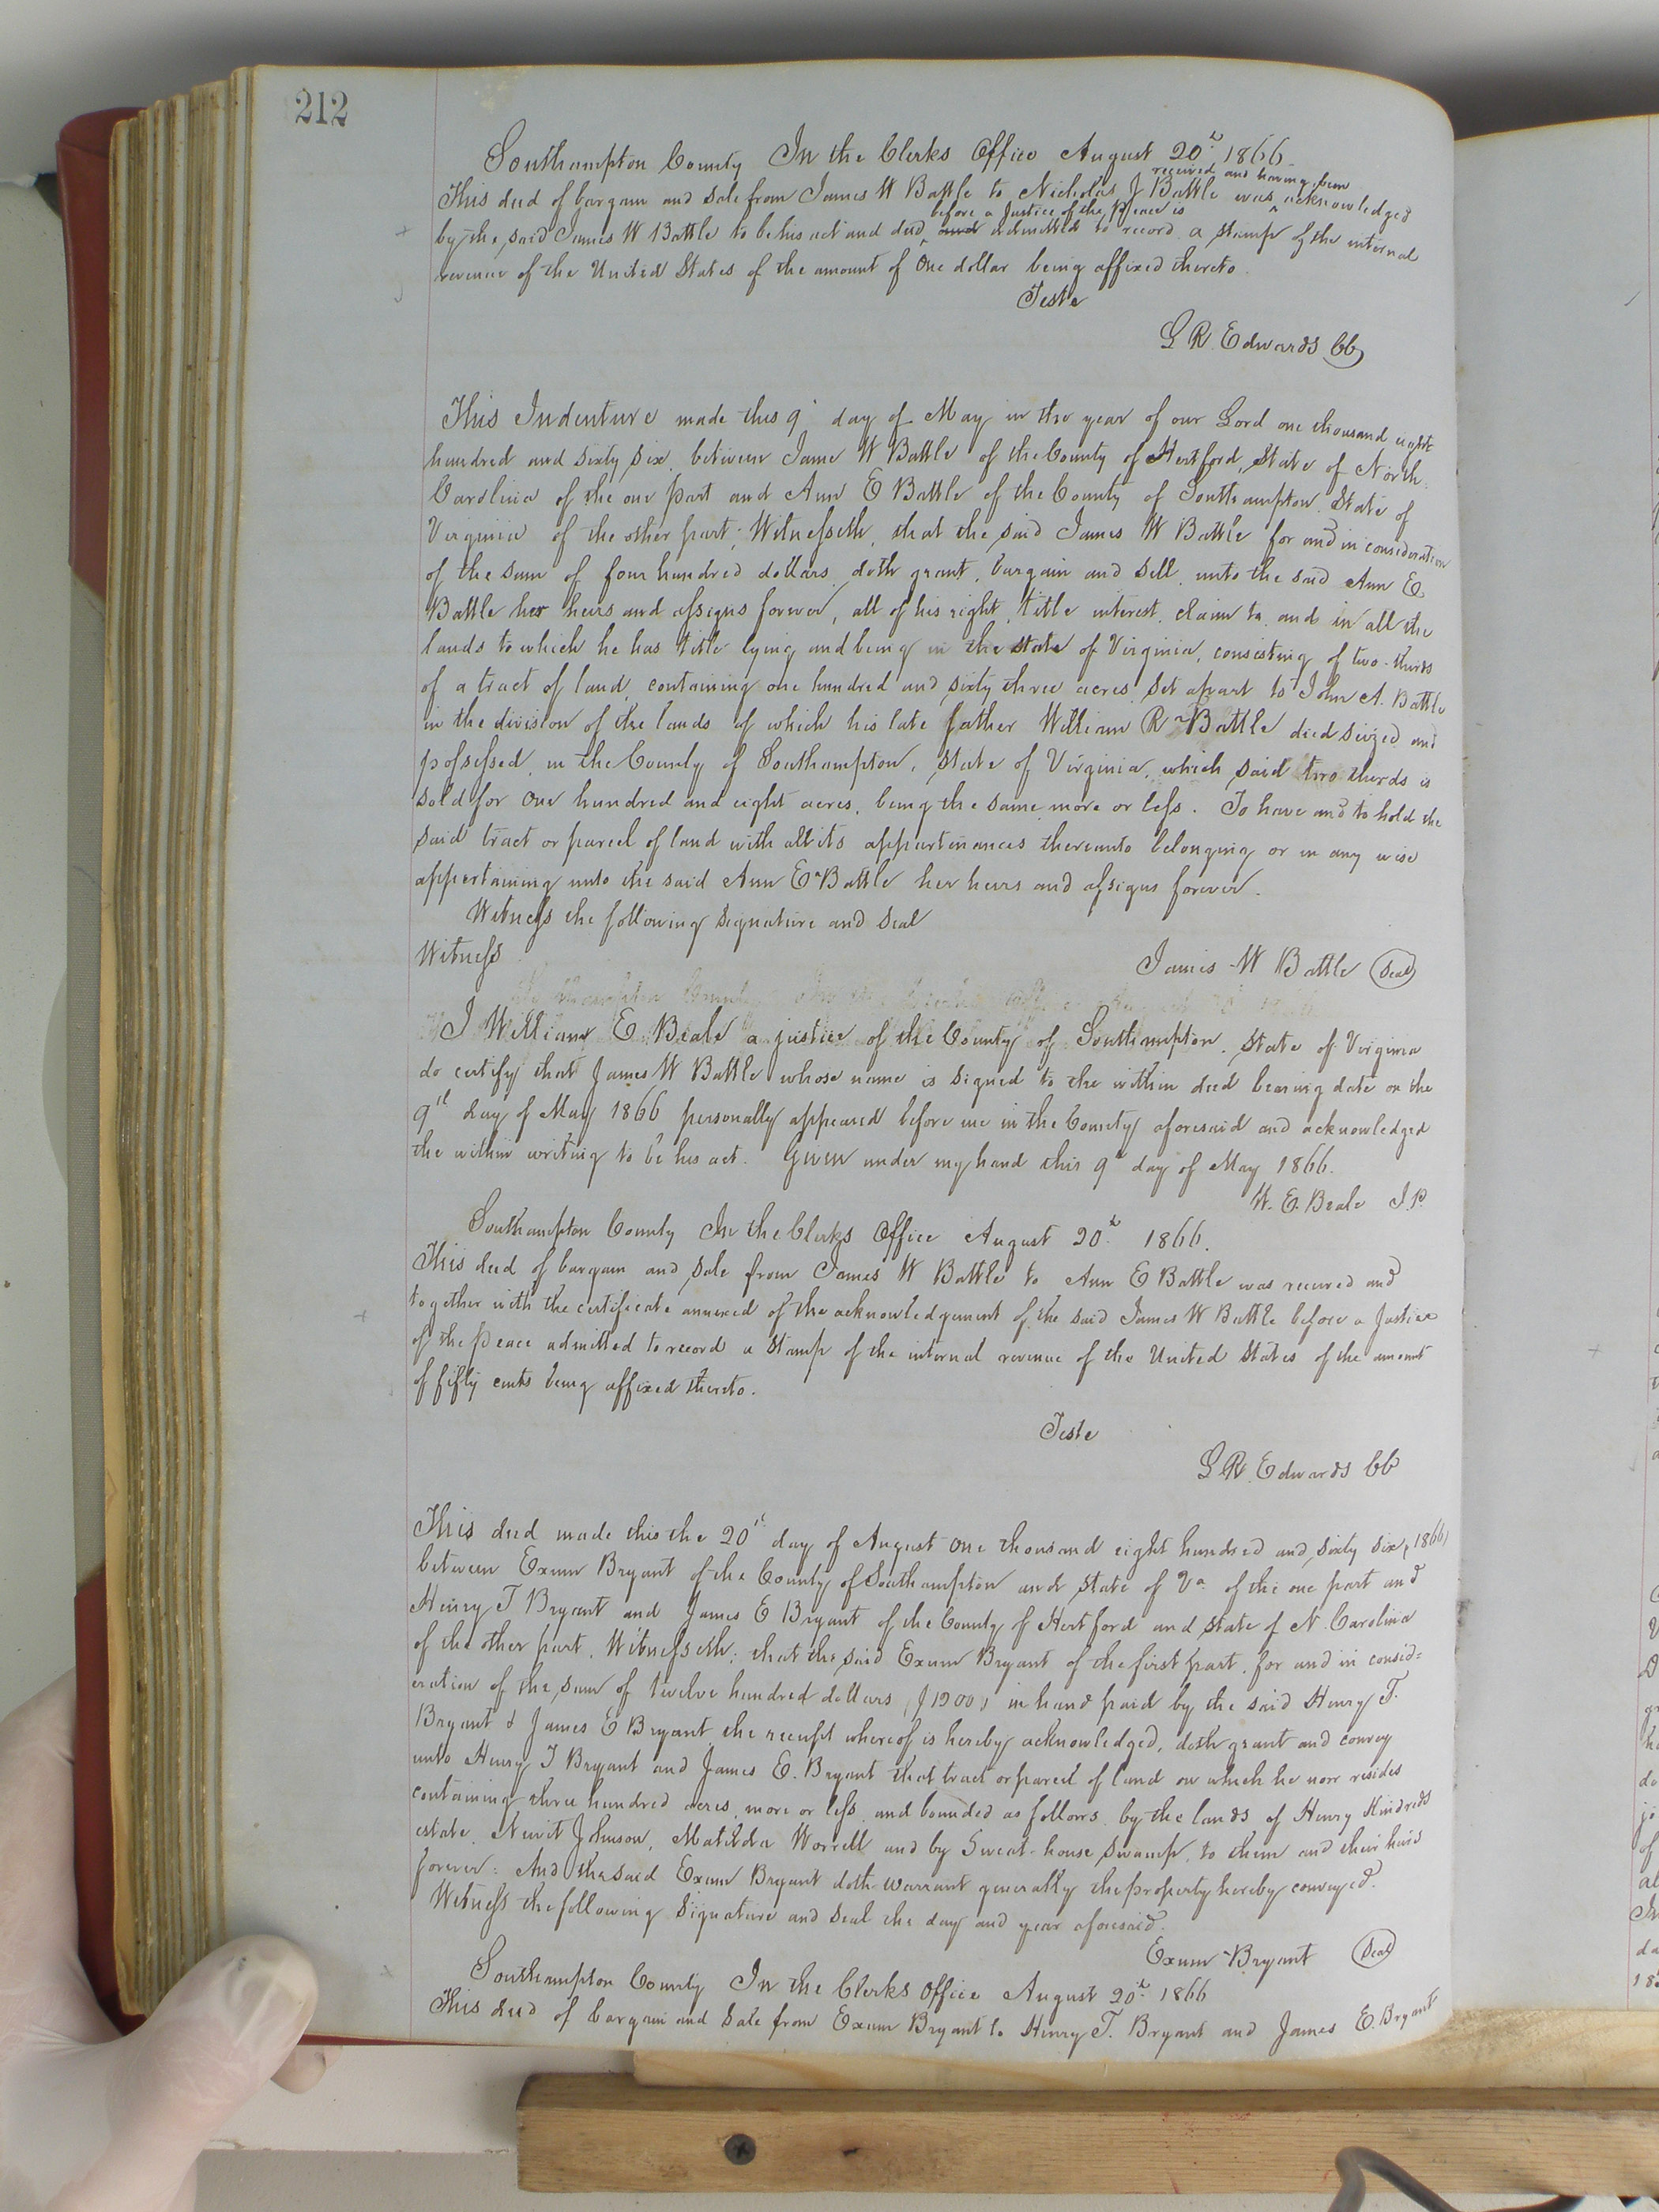 212
Southampton County In the Clerks Office August 20th 1866
received and having been
This deed of bargain and sale from James W Battle to Nicholas J Battle was ^ acknowledged
before a Justice of the Peace is
by the said James W Battle to be his act and deed ^ and admitted to record a stamp of the internal
revenue of the United States of the amount of One dollar being affixed thereto.
Teste
L R. Edwards CC
This Indenture made this 9th day of May in the year of our Lord one thousand eight
hundred and sixty six, between Jame W Battle of the County of Hertford, State of North
Carolina of the one part and Ann E Battle of the County of Southampton State of
Virginia of the other part; Witnesseth, that the said James W Battle for and in consideration
of the sum of four hundred dollars, doth grant, bargain and sell, unto the said Ann E.
Battle her heirs and assigns forever, all of his right, title interest, claim to, and in all the
lands to which he has title lying and being in the state of Virginia, consisting of two-thirds
of a tract of land, containing one hundred and sixty three acres, set apart to John A. Battle
in the division of the lands of which his late father William R Battle died seized and
possessed, in the County of Southampton, State of Virginia, which said two thirds is
sold for One hundred and eight acres, being the same more or less. To have and to hold the
said tract or parcel of land with all its appurtinances thereunto belonging or in any wise
appertaining unto the said Ann E Battle her heirs and assigns forever.
Witness the following signature and seal
Witness
James W Battle (Seal)
I William E. Beale a justice of the County of Southampton, State of Virginia
do certify that James W Battle whose name is signed to the within deed bearing date on the
9th day of May 1866 personally appeared before me in the County aforesaid and acknowledged
the within writing to be his act. Given under my hand this 9th day of May 1866.
W. E. Beale J.P.
Southampton County In the Clerks Office August 20th 1866.
This deed of bargain and sale from James W Battle to Ann E Battle was received and
together with the certificate annexed of the acknowledgement of the said James W Battle before a Justice
of the Peace admitted to record a stamp of the internal revenue of the United States of the amount
of fifty cents being affixed thereto.
Teste
L R. Edwards CC
This deed made this the 20th day of August One thousand eight hundred and sixty six (1866)
between Exum Bryant of the County of Southampton and State of Va of the one part and
Henry T Bryant and James E Bryant of the County of Hertford and state of N. Carolina
of the other part, Witnesseth; that the said Exum Bryant of the first part, for and in consid=
eration of the sum of twelve hundred dollars ($1200) in hand paid by the said Henry T.
Bryant & James E Bryant the receipt whereof is hereby acknowledged, doth grant and convey
unto Henry T Bryant and James E. Bryant that tract or parcel of land on which he now resides
containing three hundred acres, more or less, and bounded as follows, by the lands of Henry Kindreds
estate, Newit Johnson, Matilda Worrell and by Sweat-house swamp, to them and their heirs
forever: And the said Exum Bryant doth warrant generally the property hereby conveyed.
Witness the following signature and seal the day and year aforesaid.
Exum Bryant (Seal)
Southampton County In the Clerks Office August 20th 1866
This deed of bargain and sale from Exum Bryant to Henry T. Bryant and James E. Bryant